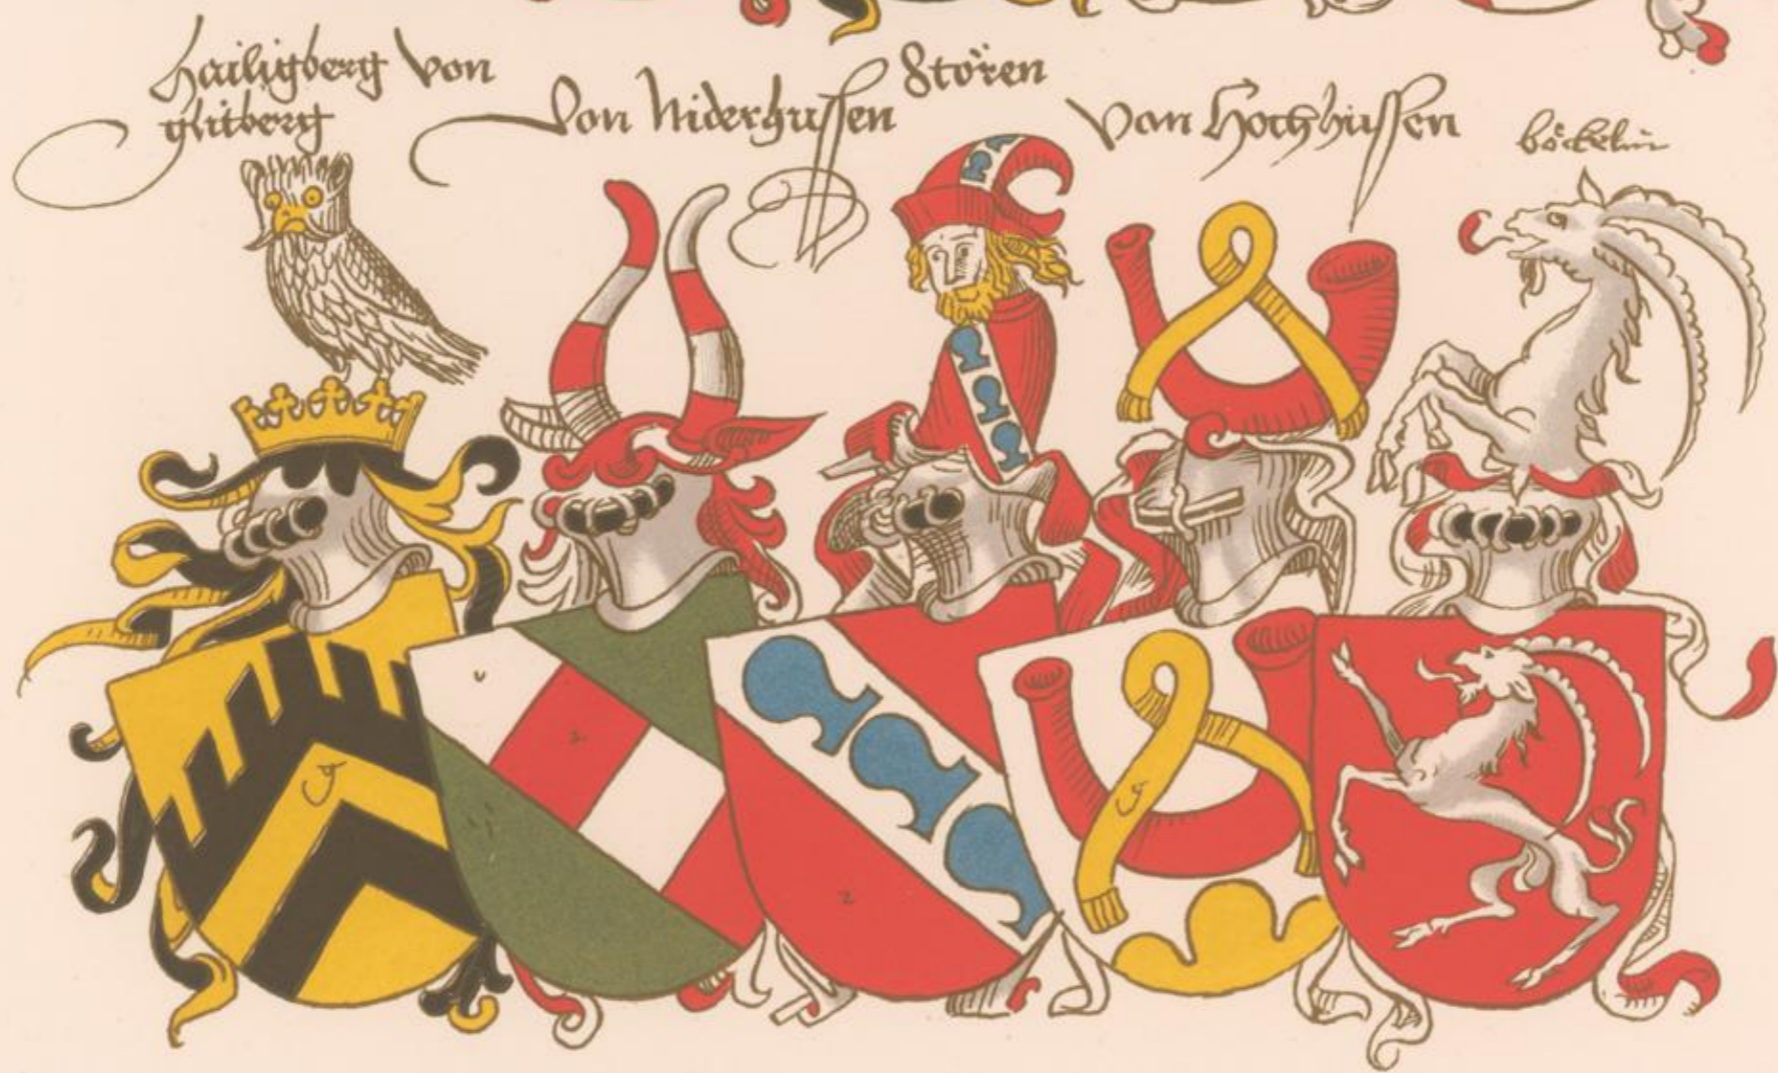 Hailigberg von
glitberg
Von Niderhussen
Stören
Von Hochhussen
böckelin